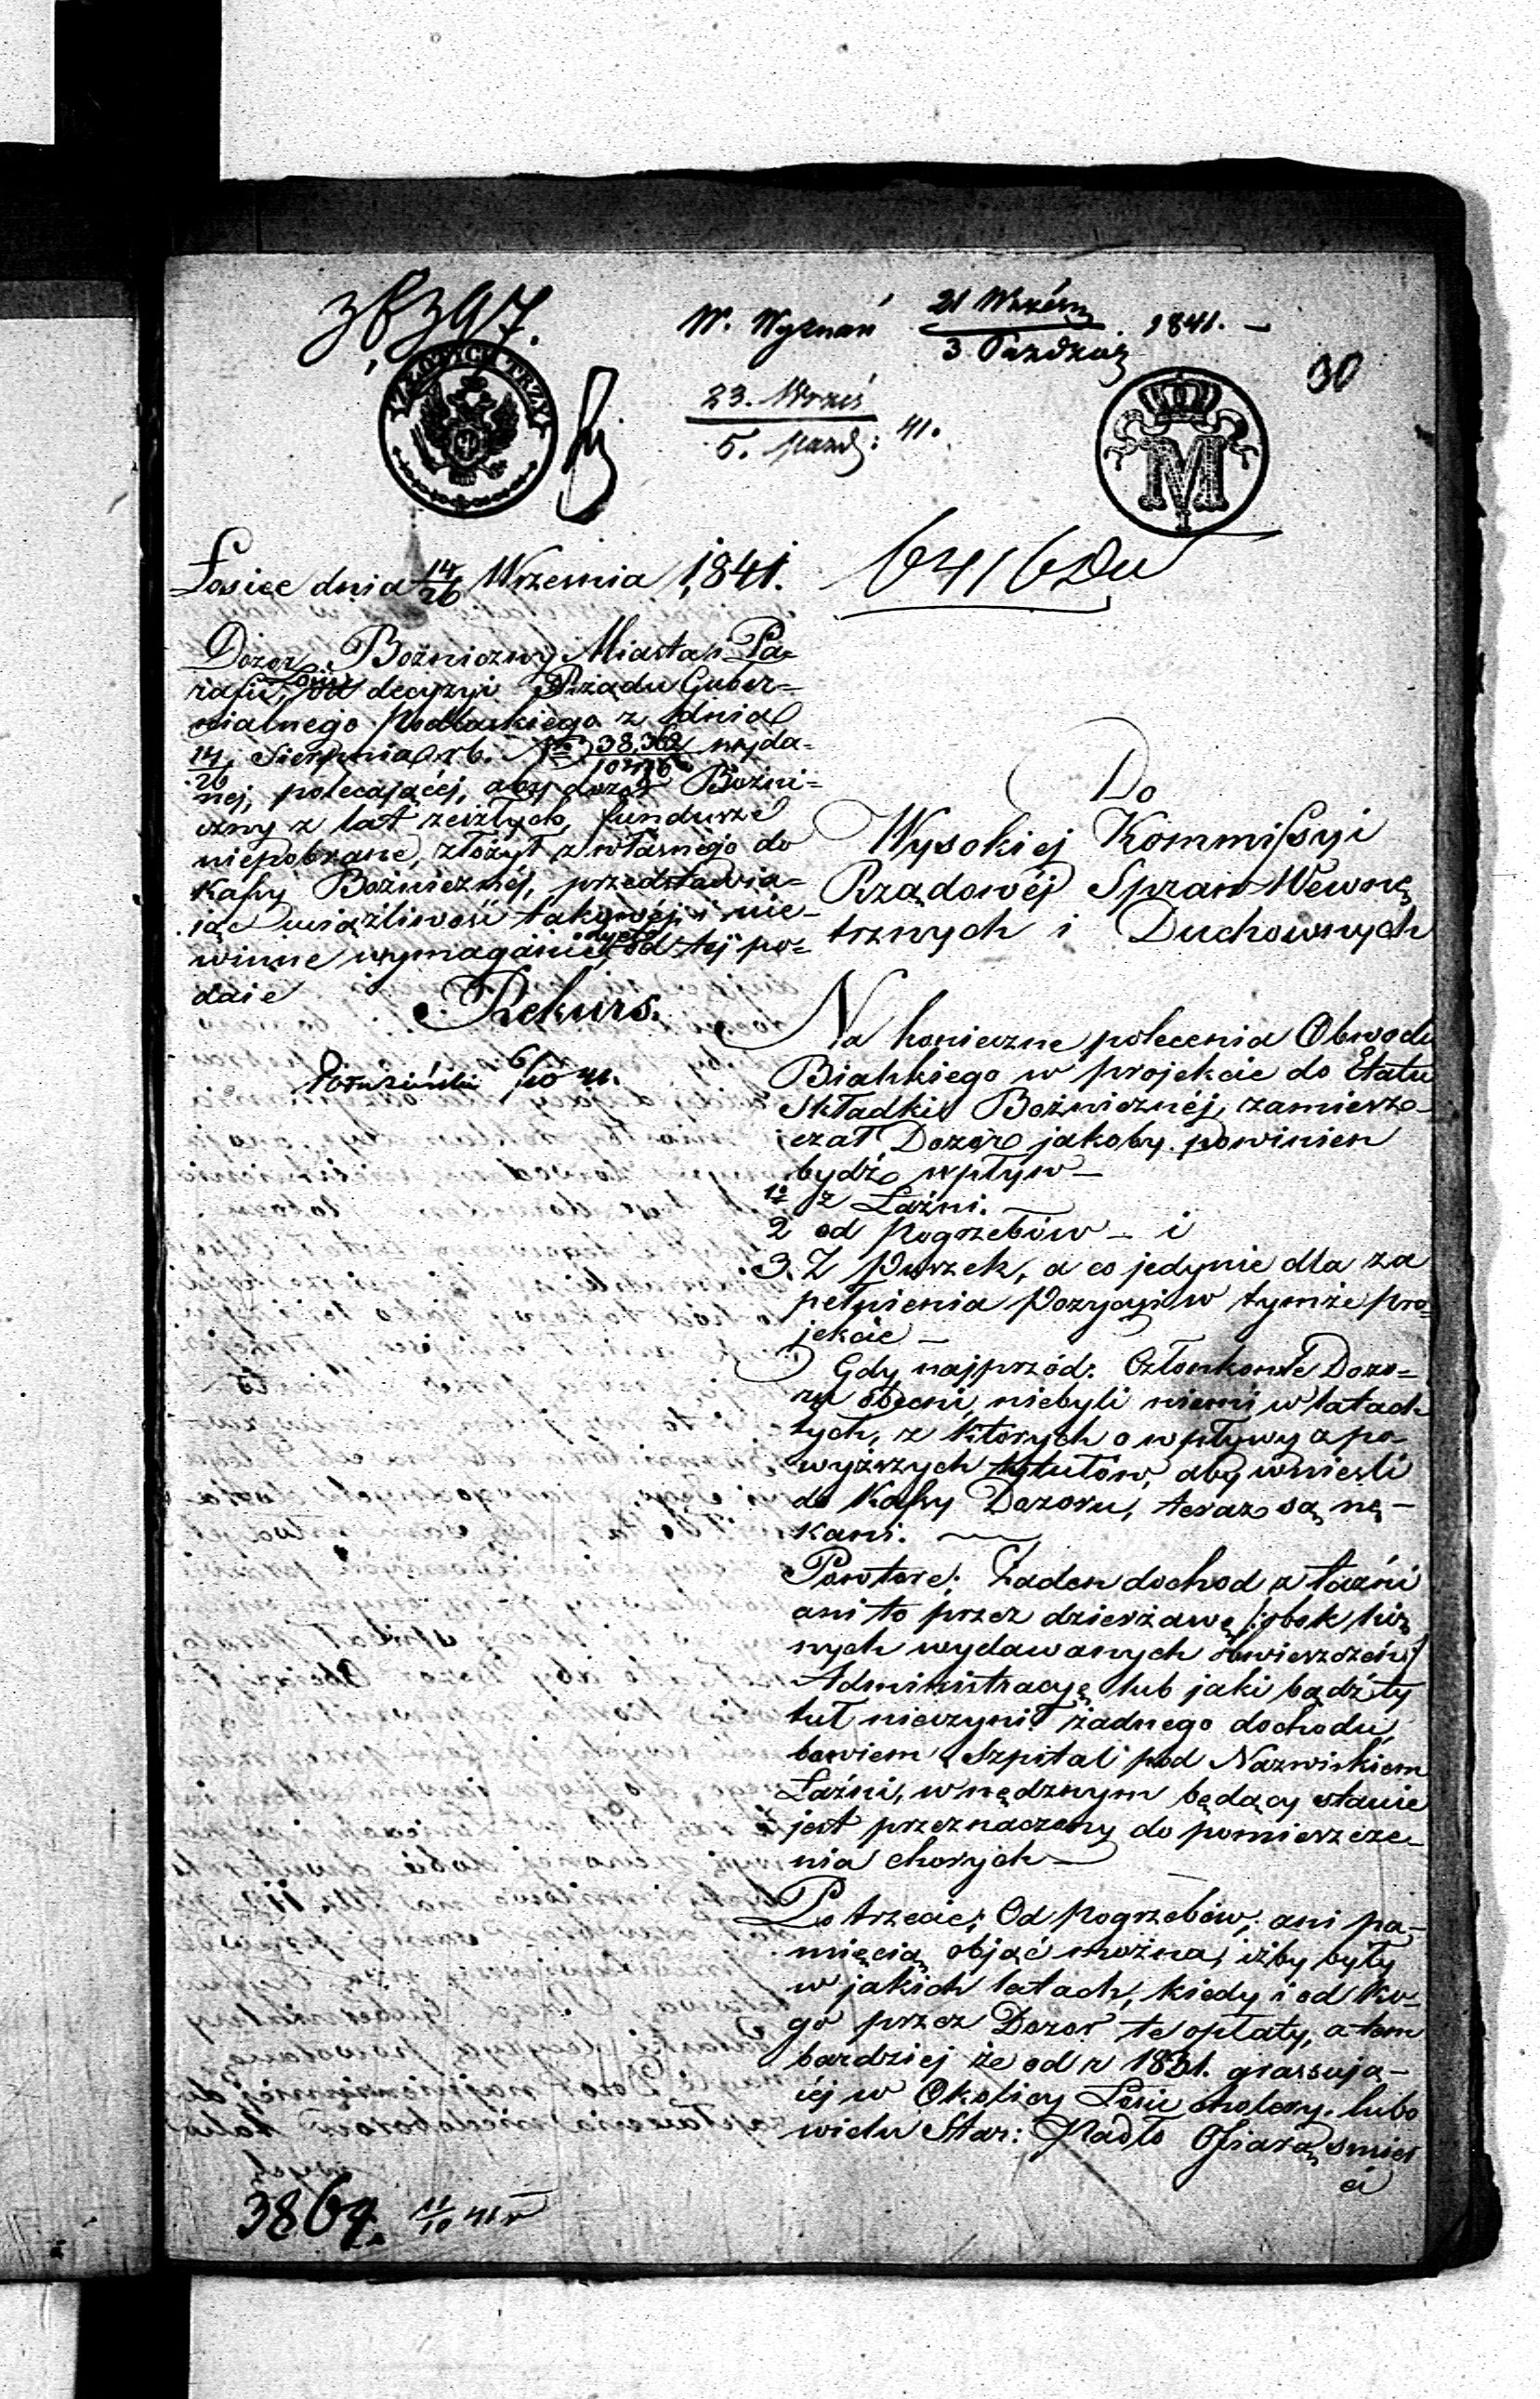 36397.
W. Wyznań 21 Wrześn / 3 Paźdz 1841. —
30
ZŁOTYCH TRZY
23. Wrześ / 5. Paźd: 41.
M
Łosice dnia 14/26 Września 1841.
6416 Du
Dozor Bożniczny Miasta i Pa=
rafii, od decyzyi Rządu Guber=
nialnego Podlaskiego z dnia
14/26 Sierpnia r b. No 38,362 wyda=
nej, polecającéj, aby dozór Bożni=
czny z lat zeszłych, fundusze
niepobrane, złożył z własnego do
Kassy Bożnicznéj, przedstawia=
iąc uciążliwość takowéj i nie-
winne wymaganie, od téj po=
daie
Rekurs.
6/10 41.
Do
Wysokiej Kommissyi
Rządowéj Spraw Wewnę
trznych i Duchownych
Na konieczne polecenia Obwodu
Bialskiego w projekcie do Etatu
Składki Bożnicznéj, zamiesz-
czał Dozór jakoby powinien
bydź wpływ —
1o z Łaźni.
2 od Pogrzebów — i
3. Z Puszek, a co jedynie dla za
pełnienia Pozycyi w tymże pro=
jekcie —
Gdy najprzód: Członkowie Dozo=
ru obecni, niebyli niemi w latach
tych, z których o wpływy z po
wyższych tytułów, aby wnieśli
do Kassy Dozoru, teraz są nę-
kani. —
Powtore; Żaden dochod z łaźni
ani to przez dzierżawę /: obok licz
nych wydawanych obwieszczeń /
Administracyę lub jaki bądź ty
tuł nieczynił żadnego dochodu,
bowiem Szpital pod Nazwiskiem
Łaźni, w nędznym będący stanie
jest przeznaczony do pomieszcze-
nia chorych —
Po trzecie; Od Pogrzebów, ani pa-
mięcią objąć można, iżby były
w jakich latach, kiedy i od ko-
go przez Dozór te opłaty, a tem
bardziej że od r 1831. grassują-
céj w Okolicy Łosic cholery, lubo
wielu Star: Padło Ofiarą śmier
ci
3864. 11/10 41 r